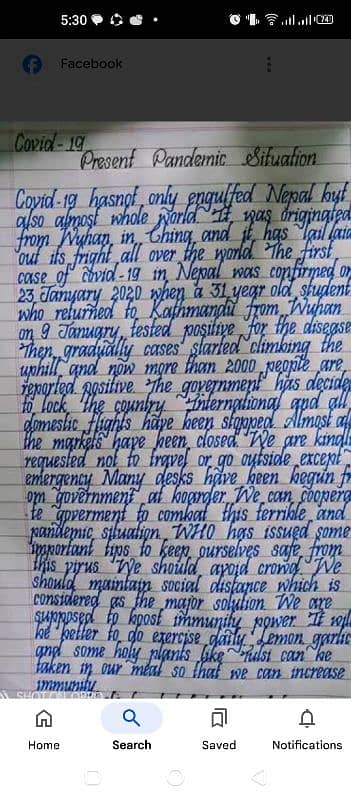 5:30
74
Facebook
Covid-19
Present Pandemic Situation
Covid-19 hasnot only engulfed Nepal but
also almost whole world It was originated
from Wuhan in China and it has tail laid
out its fright all over the world The first
case of covid-19 in Nepal was confirmed on
23 January 2020 when a 31 year old student
who returned to Kathmandu from Wuhan
on 9 January tested positive for the disease
Then gradually cases started climbing the
uphill and now more than 2000 people are
reported positive The government has decide
to lock the country International and all
domestic flights have been stopped Almost al
the markets have been closed We are kindl
requested not to travel or go outside except
emergency Many desks have been begun fr
om government at boarder We can coopera
te goverment to combat this terrible and
pandamic situation WHO has issued some
important tips to keep ourselves safe from
this virus We should avoid crowd We
should maintain social distance which is
considered as the major solution We are
supposed to boost immunity power It will
be better to do exercise daily Lemon garlic
and some holy plants like Tulsi can be
taken in our meal so that we can increase
immunity
SHOT ON OPPO
Home
Search
Saved
Notifications